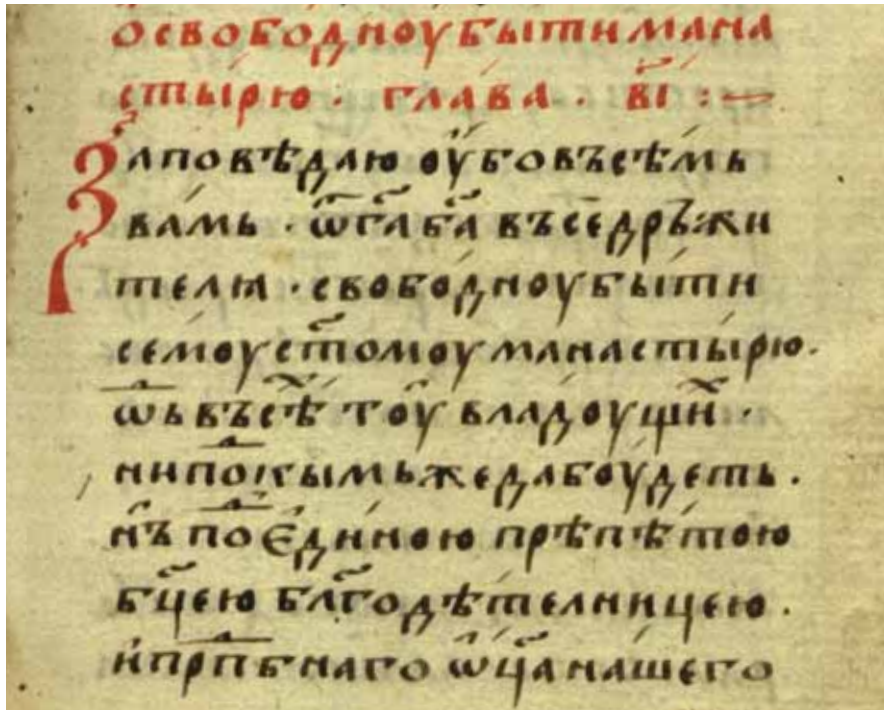 ѡсвобⷪ҇дноу быти мана
сты́рю · глава̀ · в҃і :~
Заповѣдаю ѹ҆бо въсѣ́мь
ва́мь · ѿ га҃ ба҃ въседръжи
телꙗ · свобо́дноу бы́ти
семоу ст҃омоу манасты́рю ·
ѿ въсѣ̑ⷯ тоу̑ владоу́щиⷯ ·
ни поⷣ кымь же да боу́деть ·
нъ̑ поⷣ є҆ди́ною прѣпѣ́тою
бц҃ею бл҃годѣ́телницею ·
и҆ прⷣпбнаго ѡ҆ц҃а на́шего